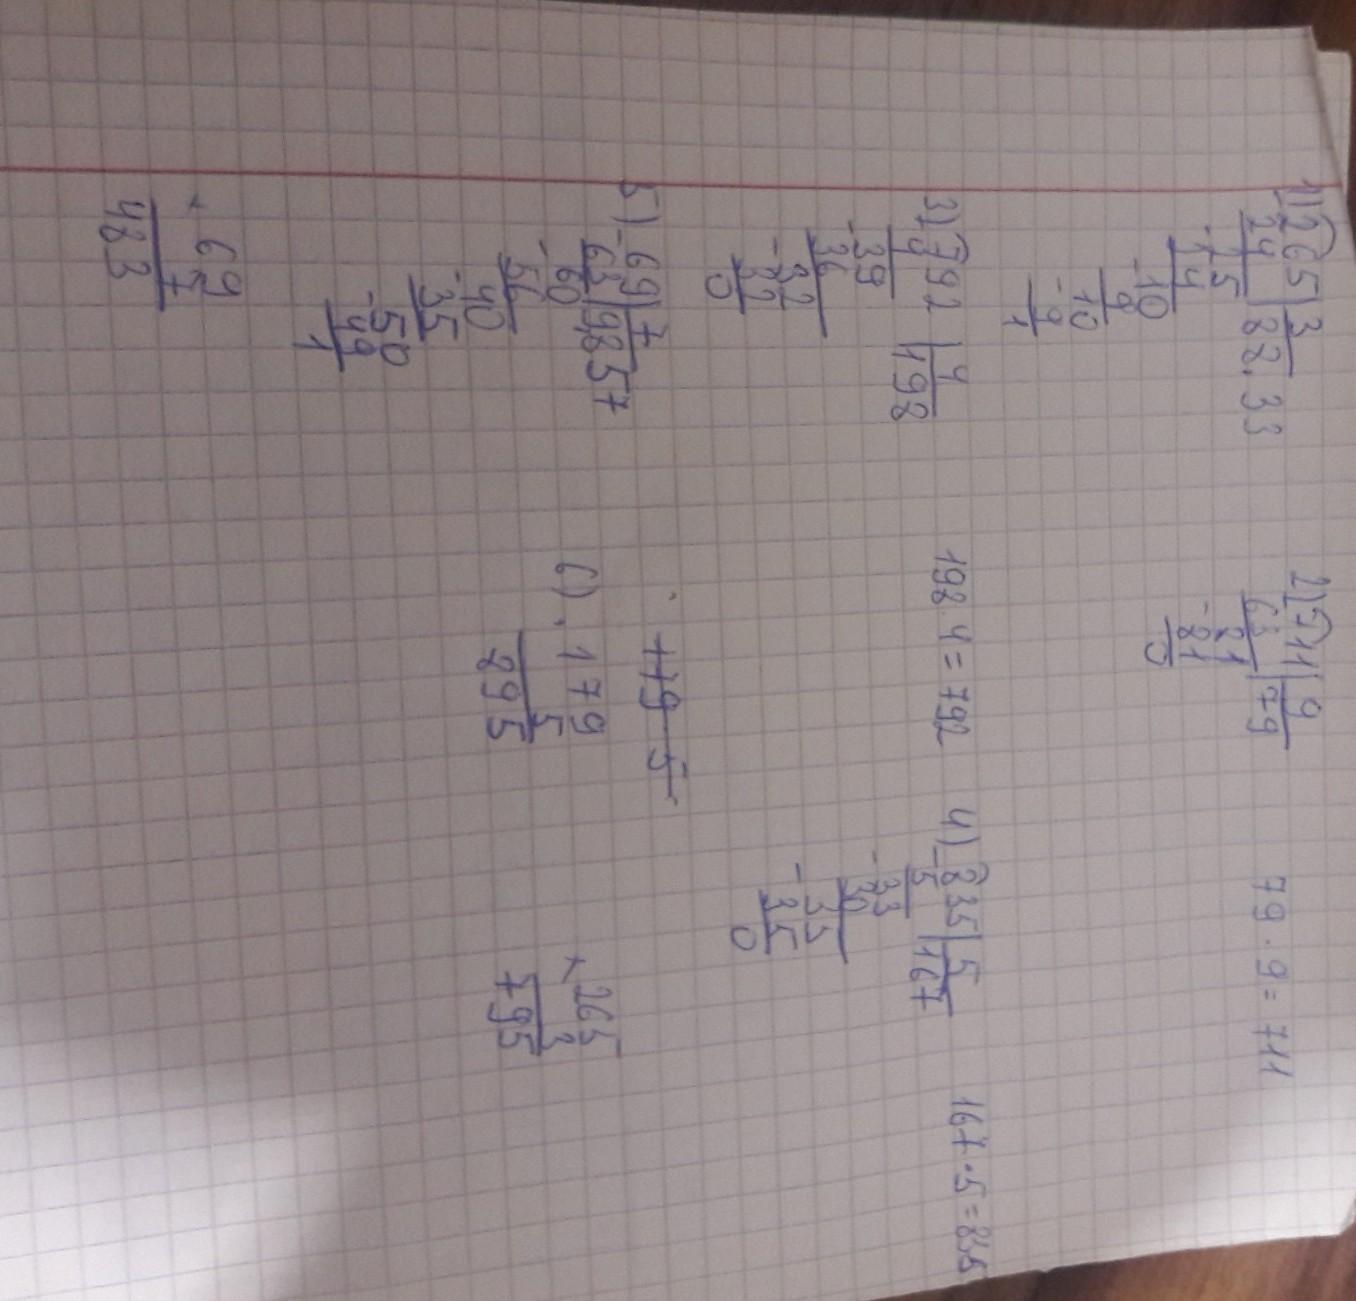 1) 265 | 3
24 | 88,33
- 25
24
- 10
9
10
- 9
1
2) 711 | 9
63 | 79
- 81
81
0
79 · 9 = 711
3) 792 | 4
4 | 198
- 39
36
- 32
32
0
198 · 4 = 792
4) - 835 | 5
5 | 167
- 33
30
- 35
35
0
167 · 5 = 835
5) - 69 | 7
63 | 9,857
- 60
56
- 40
35
- 50
49
1
179 5
6) · 179
5
295
× 265
3
795
× 69
7
483